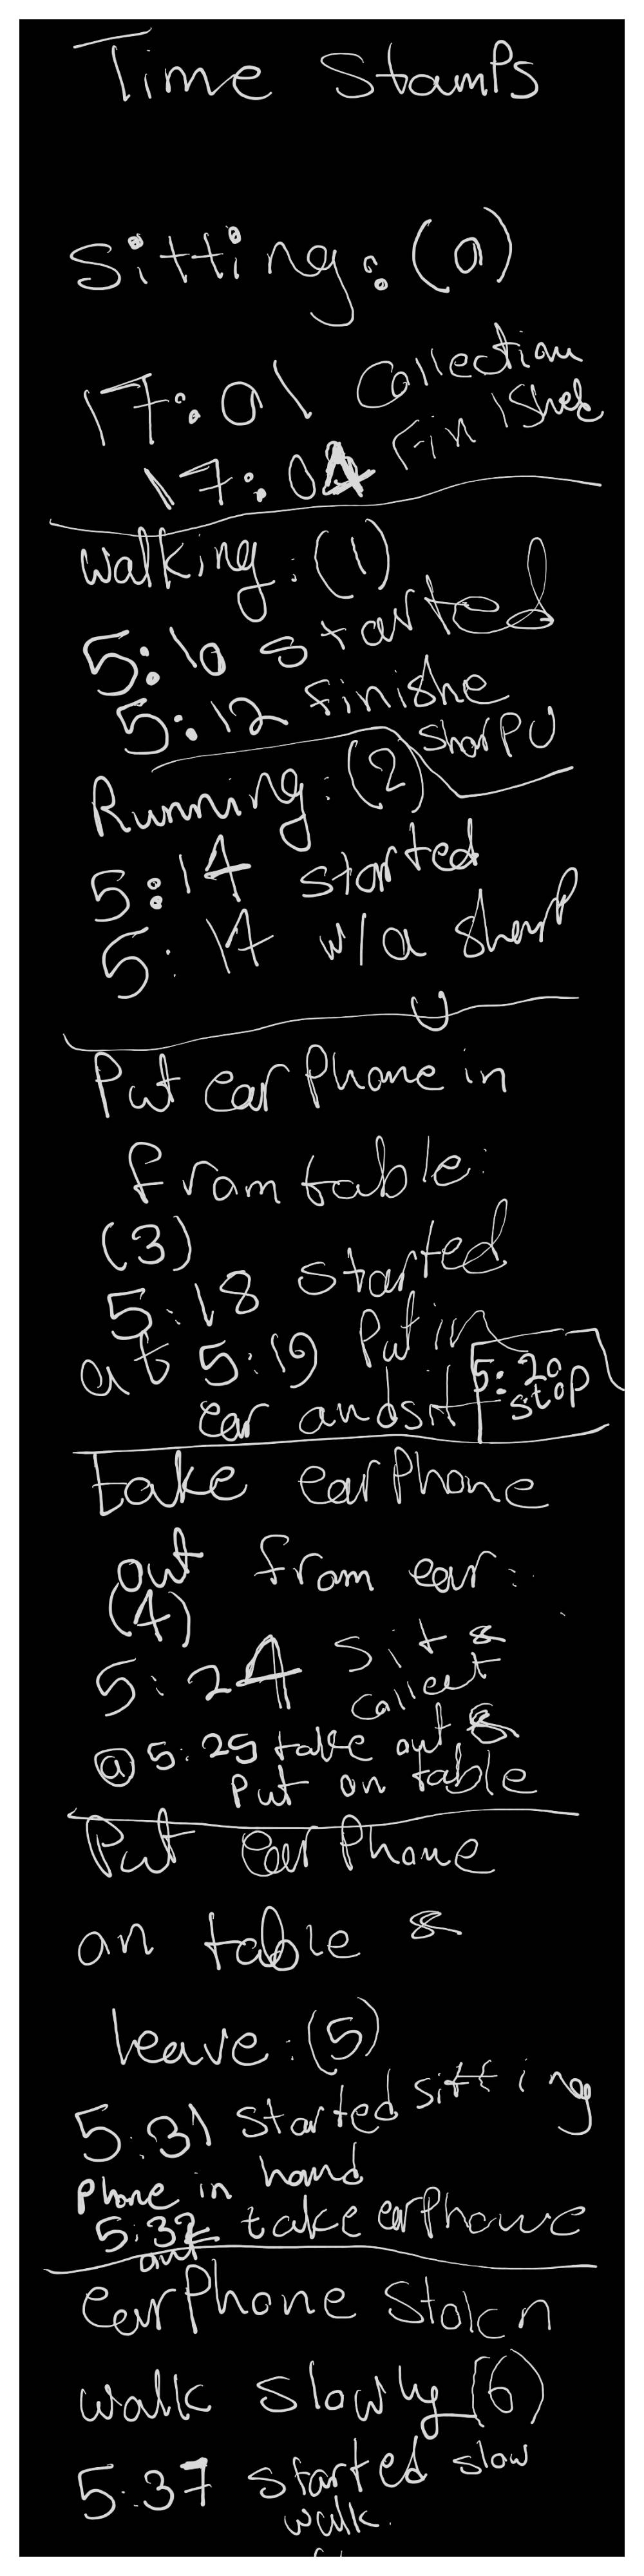 Time Stamps
Sitting: (0)
17:01 Collection
17:04 Finished
walking: (1)
5:10 started
5:12 finishe
sharp U
Running: (2)
5:14 started
5:14 w/a sharp
U
Put earPhone in
from table:
(3)
5:18 started
at 5:19 Put in
ear and sit
5:20
stop
take earPhone
out from ear:
(4)
5:24 sit &
collect
@ 5:25 take out &
put on table
Put earPhone
on table &
leave: (5)
5:31 started sitting
phone in hand
5:32 take earPhone
out
earPhone Stolen
walk slowly (6)
5:37 started slow
walk.